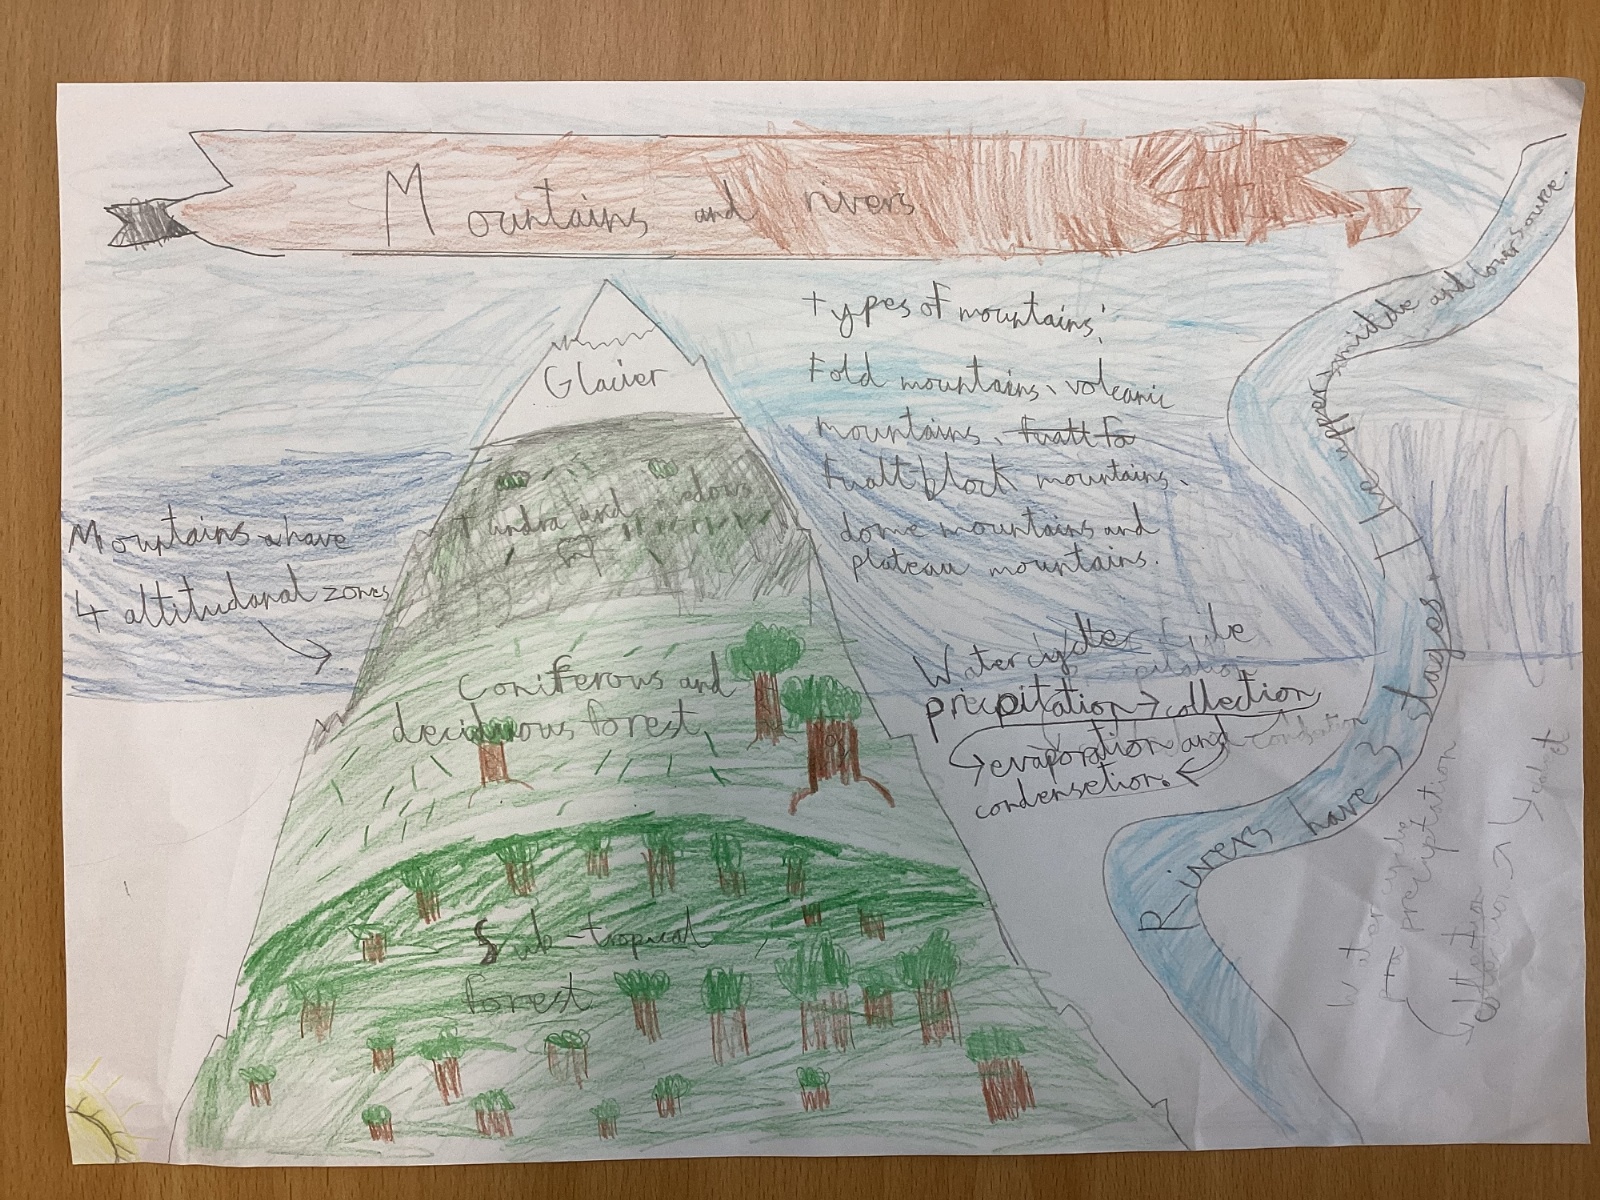 Mountains and rivers
Types of mountains:
Fold mountains, volcanic
mountains, 
Fualt block mountains,
dome mountains and
plateau mountains.
Glacier
Tundra and meadows
Mountains have
4 altitudanal zones
Coniferous and
deciduous forest
Sub-tropical
forest
Water cycle
precipitation → collection
→ evaporation and
condensetion.
Rivers have 3 stages. The upper, middle and lower source.
Water cycle
precipitation
collection